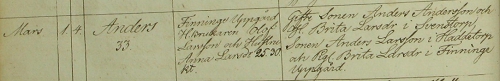 Mars. 1. 4. Anders
33
Finninge Uppgård
Hbrukaren Olof
Larsson och Hustru
Anna Larsdr 25.30
kt.
Gifte Sonen Anders Andersson och
H. Brita Larsdr i Svenstorp,
Sonen Anders Larsson i Hadsetorp
och Pig. Brita Larsdr i Finninge
Uppgård.